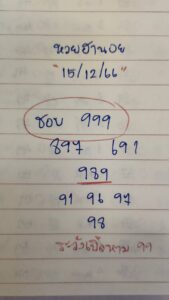 หวยฮานอย
"15/12/66"
ชอบ 999
897 691
989
91 96 97
98
ระวังเบิ้ลหาม 99